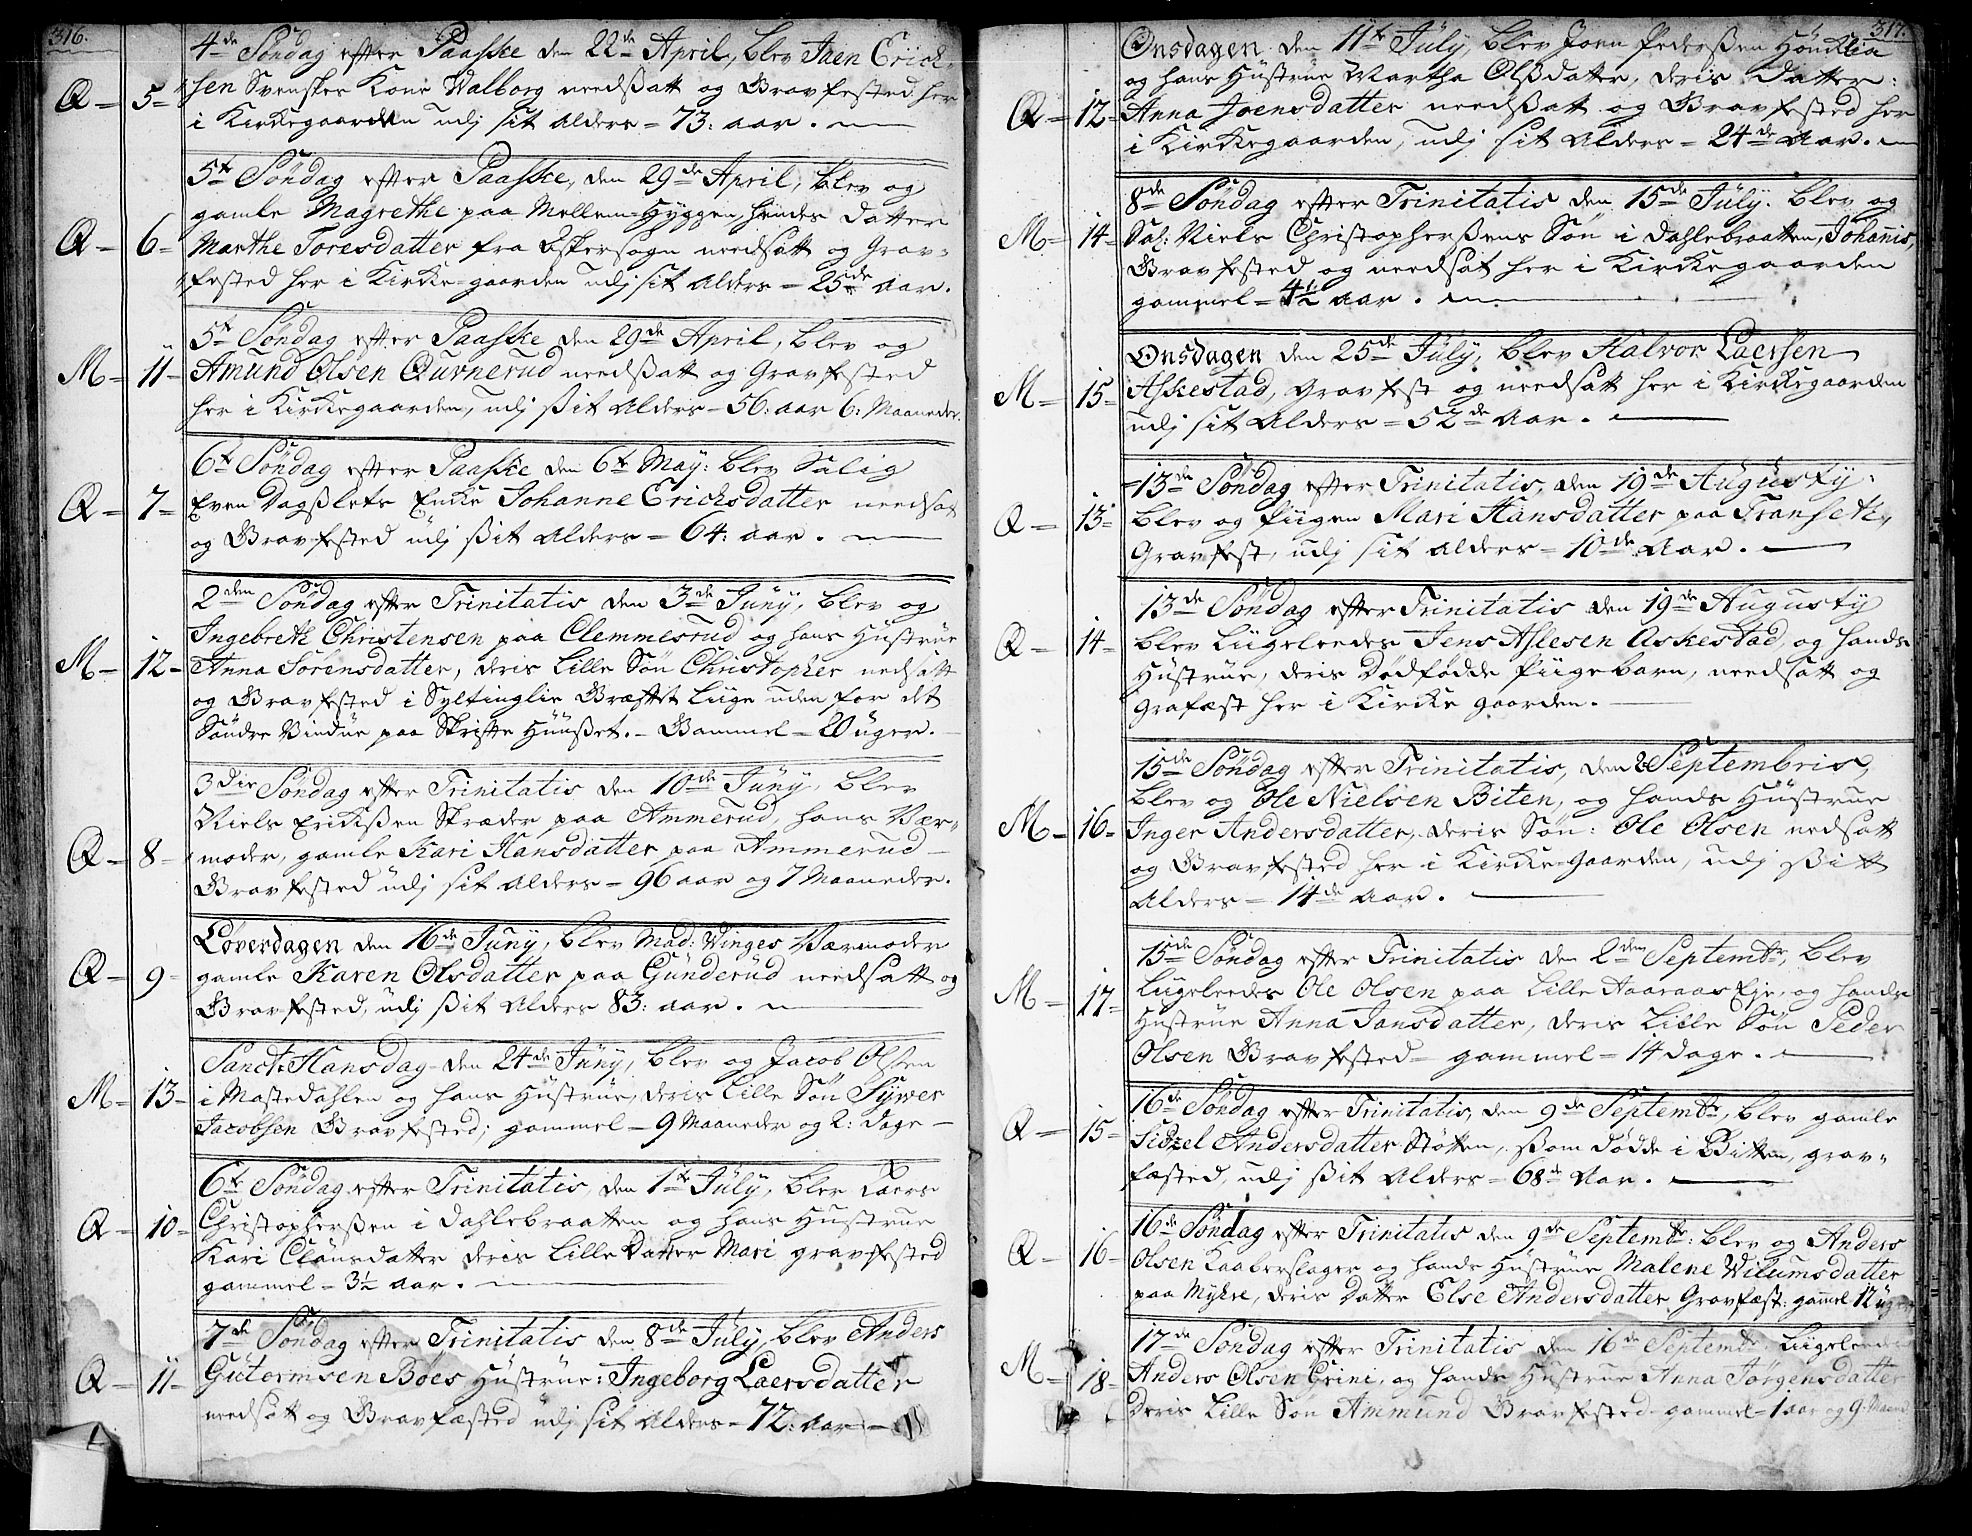 316.
4de Søndag efter Paaske den 22de April, blev Joen Erich-
Q - 5 - sen Svenskes Kone Walborg needsatt og Gravfested her
i Kirkegaarden udj sit Alders - 73: aar.
5te Søndag efter Paaske, den 29de April, blev og
gamle Magrethe paa Mellem-Hyggen, hendes Datter
Q - 6 - Marthe Toresdatter fra Eskersogn needsatt og Grav-
fested her i Kirke-gaarden udj sit Alders - 25de aar.
5te Søndag efter Paaske den 29de April, blev og
M - 11 - Amund Olsen Qurnerud needsatt og Gravfested
her i Kirkegaarden, udj sit Alders - 56: aar 6: Maaneder.
6te Søndag efter Paaske den 6te May: blev Salig
Q - 7 - Even Dagslets Encke Johanne Ericksdatter needsat
og Gravfested udj sit Alders - 64: aar.
2den Søndag efter Trinitatis den 3de Juny, blev og
Ingebreth Christensen paa Clemmesrud og hans Hustrue
M - 12 - Anna Sørensdatter, deris Lille Søn Christopher nedsatt
og Gravfested i Syltinglie Græfttet Liige uden for det
Søndre Vindue paa Skrifte Huuset. - Gammel - 20 uger.
3die Søndag efter Trinitatis den 10de Juny, blev
Niels Eriksen Skræder paa Ammerud, hans Vær-
Q - 8 - moder, gamle Kari Hansdatter paa Ammerud
Gravfested udj sit Alders - 96 aar og 7 Maaneder.
Løverdagen den 16de Juny, blev Mad: Winges Værmoder
Q - 9 - gamle Karen Olsdatter paa Gunderud needsatt og
Gravfested, udj sit Alders 83: aar.
Sanct Hansdag den 24de Juny, blev og Jacob Olsen
M - 13 - i Mastedahlen og hans Hustrue, deris Lille Søn Syver
Jacobsen Gravfested; gammel - 9 Maaneder og 2: dage -
6te Søndag efter Trinitatis, den 1te July, blev Laers
Q - 10 - Christophersen i Dahlebraatten og hans Hustrue
Kari Clausdatter deris Lille Datter Mari gravfested
gammel - 3½ aar.
7de Søndag efter Trinitatis den 8de July, blev Anders
Q - 11 - Gutormsen Bøes Hustrue: Ingeborg Laersdatter
needsatt og Gravfæsted udj sit Alders - 72: aar -
317.
Onsdagen den 11te July, blev Joen Pedersen Hønklia
og hans Hustrue Martha Olsdatter, deris Datter:
Q - 12 - Anna Joensdatter needsatt og Gravfested her
i Kirkegaarden, udj sit Alders - 24de Aar.
8de Søndag efter Trinitatis den 15de July. blev og
M - 14 - Sal: Niels Christophersens Søn i Dahlebraatten, Johanis,
Gravfested og needsat her i Kirkegaarden
gammel - 4½ aar.
Onsdagen den 25de July, blev Halvor Laersen
M - 15 - Askestad, Gravfest og needsatt her i Kirkegaarden
udj sit Alders - 52de Aar.
13de Søndag efter Trinitatis, den 19de Augusty:
Q - 13 - blev og Piigen Mari Hansdatter paa
Gravfest, udj sit Alders - 10de Aar.
13de Søndag efter Trinitatis den 19de Augusty
Q - 14 - blev Liigeleedes Jens Aslesen Askestad, og hands
Hustrue, deris Dødfødde Piigebarn, needsatt og
Grafæst her i Kirke gaarden.
15de Søndag efter Trinitatis, den 2 Septembris,
blev og Ole Nielsen Biten, og hands Hustrue
M - 16 - Inger Andersdatter, deris Søn: Ole Olsen nedsatt
og Gravfested her i Kirke-Gaarden, udj sitt
Alders - 14de aar.
15de Søndag efter Trinitatis den 2den Septembr, blev
M - 17 - Liigeleedes Ole Olsen paa Lille Aaraas Eje, og hands
Hustrue Anna Jansdatter, deris Lille Søn Peder
Olsen Gravfested - gammel - 14 dage.
16de Søndag efter Trinitatis, den 9de Septembr, blev gamle
Q - 15 - Sidzel Andersdatter Støtten, som døde i Bitten, grav-
fæsted, udj sit Alders - 68de Aar.
16de Søndag efter Trinitatis den 9de Septembr: blev og Anders
Q - 16 - Olsen Kaaberslager og hands Hustrue Malene Wilumsdatter
paa Myhre, deris Datter Else Andersdatter Gravfæst: gammel 12 uger
17de Søndag efter Trinitatis den 16de Septembr Liigeleedes
M - 18 - Anders Olsen Grini, og hands Hustrue Anna Jørgensdatter
Deris Lille Søn Ammund Gravfested gammel - 1 aar og 9 Maand